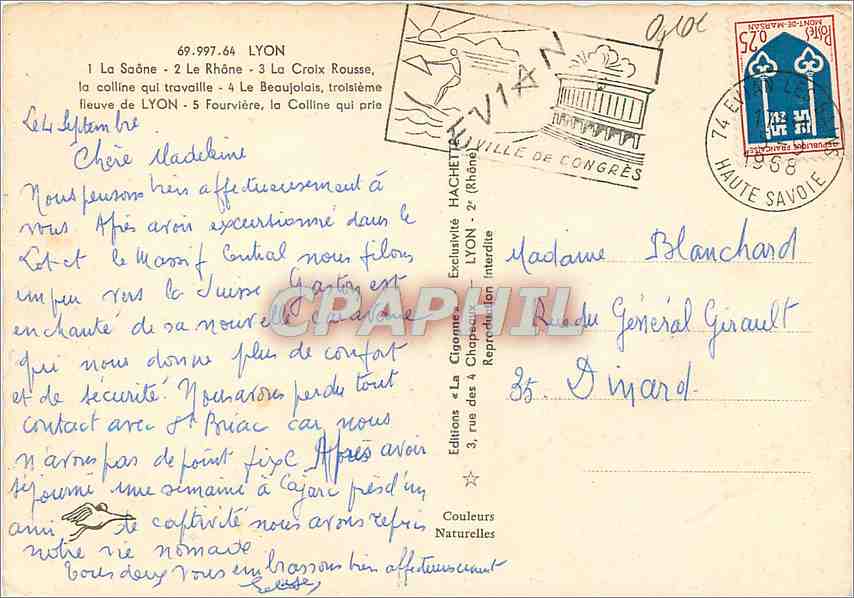 69.997.64 LYON
1 La Saône - 2 Le Rhône - 3 La Croix Rousse,
la colline qui travaille - 4 Le Beaujolais, troisième
fleuve de LYON - 5 Fourvière, la Colline qui prie
Le 4 Septembre
Chère Madeleine
Nous pensons bien affectueusement à
vous Après avoir excursionné dans le
Lot et le Massif Central nous filons
un peu vers la Suisse Gaston est
enchanté de sa nouvelle caravane
qui nous donne plus de confort
et de sécurité. Nous avons perdu tout
contact avec St Briac car nous
n'avons pas de point fixe Après avoir
séjourné une semaine à Cajarc près d'un
ami de captivité nous avons repris
notre vie nomade
Tous deux vous embrassons bien affectueusement
Editions « La Cigogne » - Exclusivité HACHETTE
3, rue des 4 Chapeaux - LYON - 2e (Rhône)
Reproduction Interdite
Couleurs
Naturelles
EVIAN
VILLE DE CONGRÈS
74 EVIAN LES
1968
HAUTE SAVOIE
0,25
Postes
MONT-DE-MARSAN
REPUBLIQUE FRANÇAISE
Madame Blanchard
Rue du Général Girault
35. Dinard
CPAPHIL